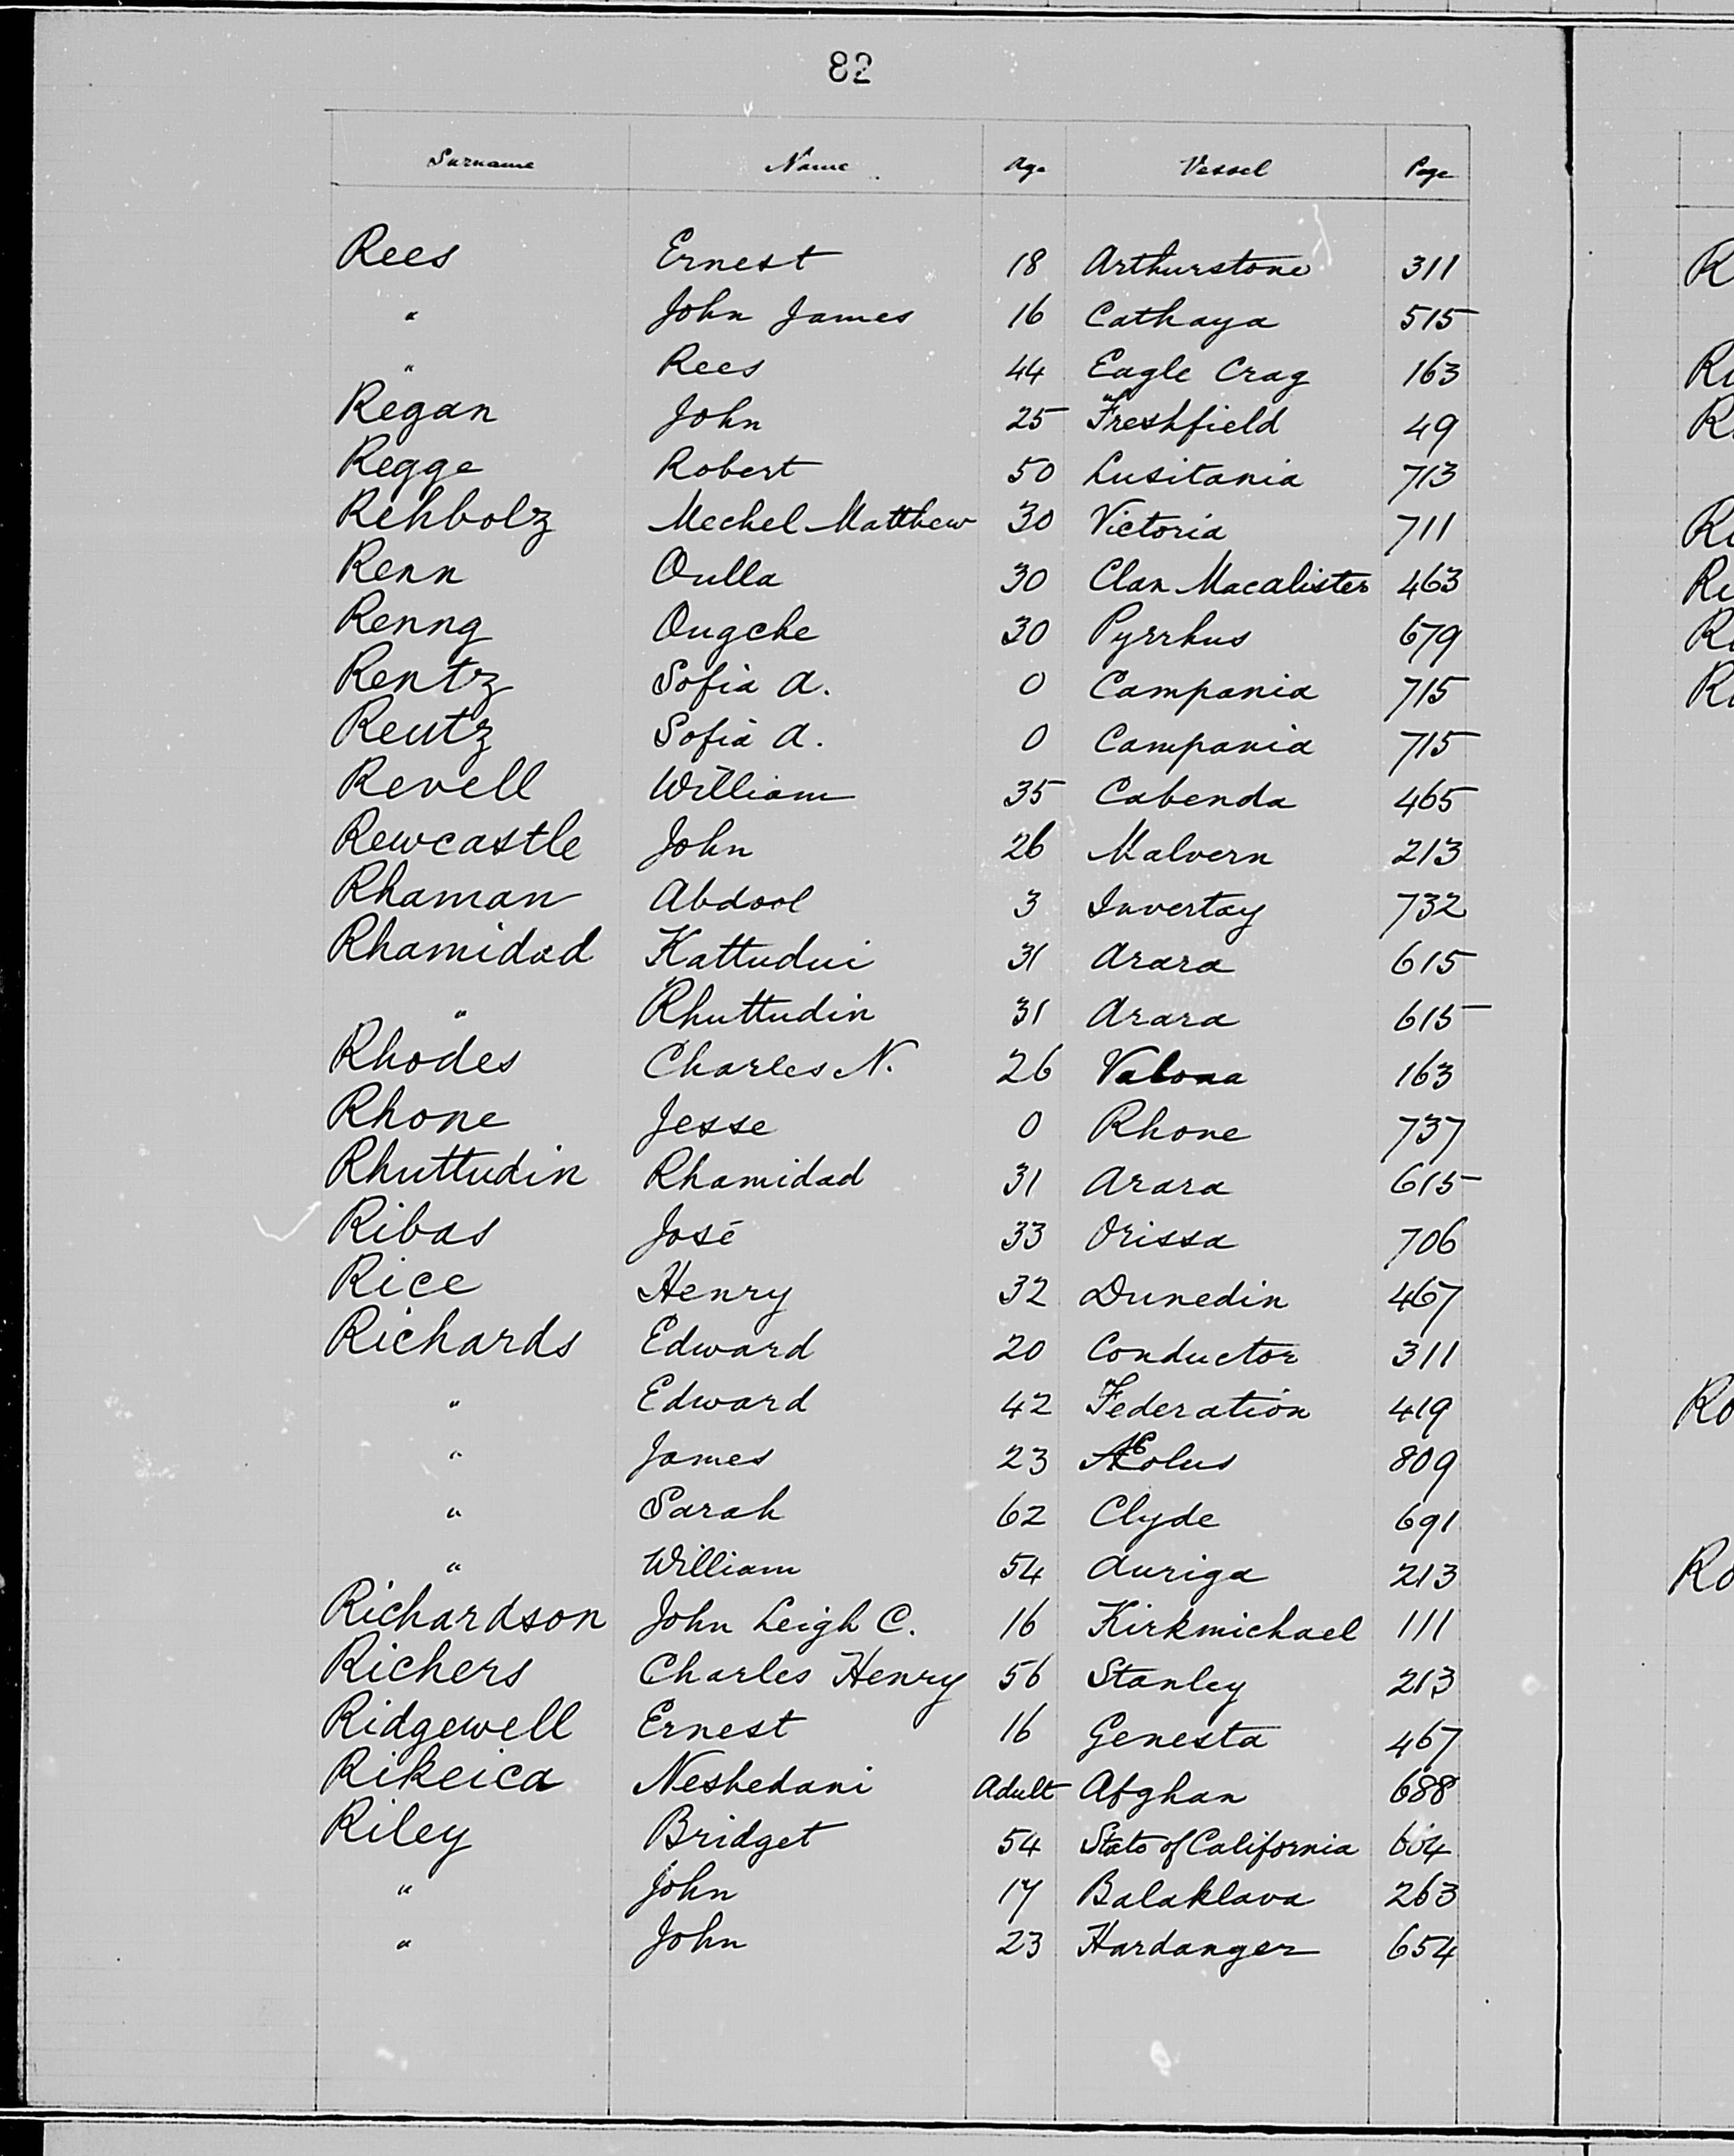 82
Surname Name Age Vessel Page
Rees Ernest 18 Arthurstone 311
" John James 16 Cathaya 515
" Rees 44 Eagle Crag 163
Regan John 25 Freshfield 49
Regge Robert 50 Lusitania 713
Rehbolz Mechel Matthew 30 Victoria 711
Renn Oulla 30 Clan Macalister 463
Renng Ougche 30 Pyrrhus 679
Rentz Sofia A. 0 Campania 715
Reutz Sofia A. 0 Campania 715
Revell William 35 Cabenda 465
Rewcastle John 26 Malvern 213
Rhaman Abdool 3 Invertay 732
Rhamidad Kattudui 31 Arara 615
" Rhuttudin 31 Arara 615
Rhodes Charles N. 26 Valona 163
Rhone Jesse 0 Rhone 737
Rhuttudin Rhamidad 31 Arara 615
Ribas José 33 Orissa 706
Rice Henry 32 Dunedin 467
Richards Edward 20 Conductor 311
" Edward 42 Federation 419
" James 23 Æolus 809
" Sarah 62 Clyde 691
" William 54 Auriga 213
Richardson John Leigh C. 16 Kirkmichael 111
Richers Charles Henry 56 Stanley 213
Ridgewell Ernest 16 Genesta 467
Rikeica Neshedani Adult Afghan 688
Riley Bridget 54 State of California 604
" John 17 Balaklava 263
" John 23 Hardanger 654